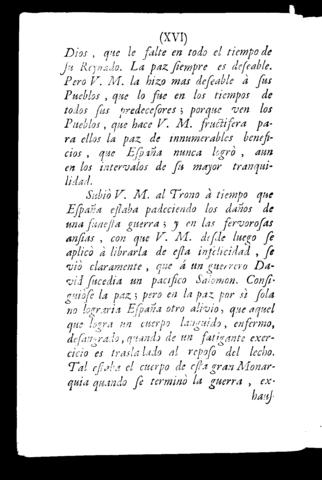 (XVI)
Dios, que le falte en todo el tiempo de
ſu Reynado. La paz ſiempre es deſeable.
Pero V. M. la hizo mas deſeable à sus
Pueblos, que lo fue en los tiempos de
todos ſus predeceſores; porque ven los
Pueblos, que hace V. M. fructifera pa-
ra ellos la paz de innumerables benefi-
cios, que Eſpaña nunca logrò, aun
en los intervalos de ſu mayor tranqui-
lidad.
Subiò V. M. al Trono à tiempo que
Eſpaña eſtaba padeciendo los daños de
una funeſta guerra; y en las fervoroſas
anſias, con que V. M. deſde luego ſe
aplicò à librarla de eſta infelicidad, ſe
viò claramente, que à un guerrero Da-
vid ſucedia un pacifico Salomon. Conſi-
guiòſe la paz; pero en la paz por sì ſola
no lograria Eſpaña otro alivio, que aquel
que logra un cuerpo languido, enfermo,
deſangrado, quando de un fatigante exer-
cicio es traſladado al repoſo del lecho.
Tal eſtaba el cuerpo de eſta gran Monar-
quia quando ſe terminò la guerra, ex-
hauſ-